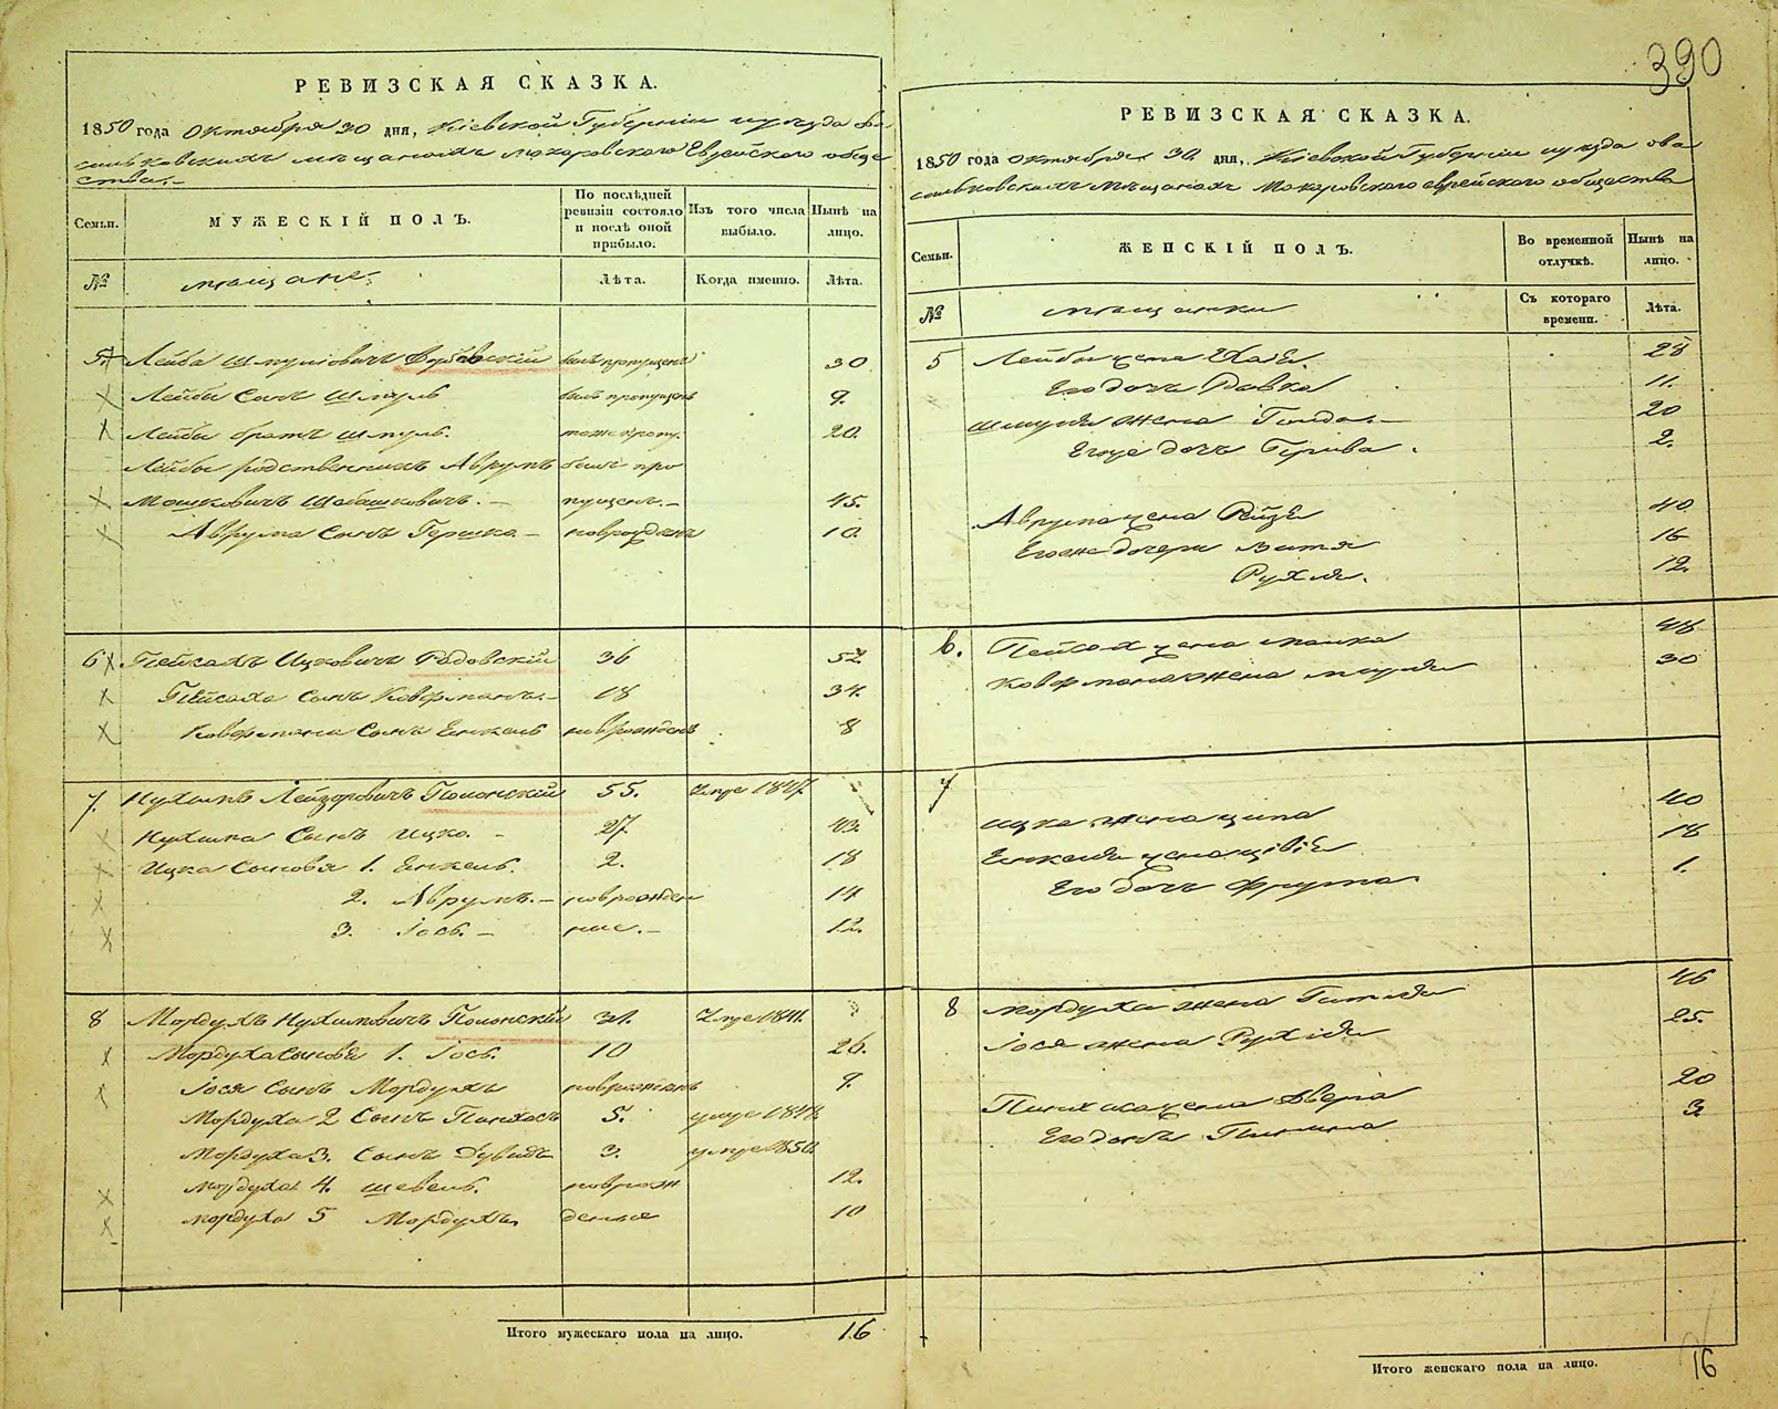 390
РЕВИЗСКАЯ СКАЗКА.
1850 года Октября 30 дня, Кіевской Губерніи уезда Ва-
сильковскихъ мещанахъ Макаровского Еврейского обще
ства.-
Семьи.
МУЖЕСКІЙ ПОЛЪ.
По послѣдней ревизіи состояло и послѣ оной прибыло.
Изъ того числа выбыло.
Нынѣ на лицо.
№
мещане:
Лѣта.
Когда именно.
Лѣта.
5. Лейба Шмулiовичъ был пропущенъ 30
Лейбы Сынъ Шмуль былъ пропущенъ 9.
Лейбы братъ Шмуль. тоже 20.
Лейбы родственникъ Аврумъ былъ про
Мошковичъ Шабашковичъ. - пущенъ. - 45.
Аврума Сынъ Гершко. - новрожденъ 10.
6 Пейсахъ Ицковичъ Радовскій 36 52
Пейсаха Сынъ Ковфманъ. - 18 34.
Ковфмана Сынъ Енкель новрожденъ 8
7. Нухимъ Лейзоровичъ Полонскій 55. Умре 1847.
Нухима Сынъ Ицко. - 27. 43.
Ицка Сыновья 1. Енкель. 2. 18
2. Аврумъ. - новрожден 14
3. Іось. - ные. - 12.
8 Мордухъ Нухимовичъ Полонскій 31. Умре 1841.
Мордуха Сыновья 1. Іось. 10 26.
Іося Сынъ Мордухъ новрожденъ 9.
Мордуха 2 Сынъ Пинхасъ 5. умре 1848.
Мордуха 3. Сынъ Дувидъ 3. умре 1850.
Мордуха 4. Шевель. новрож 12.
Мордуха 5 Мордухъ деные 10
Итого мужескаго пола на лицо. 16
РЕВИЗСКАЯ СКАЗКА.
1850 года Октября 30 дня, Кіевской Губерніи уезда о Ва
сильковскихъ мещанахъ Макаровского еврейского общества
Семьи.
ЖЕНСКІЙ ПОЛЪ.
Во временной отлучкѣ.
Нынѣ на лицо.
№
мещанки
Съ котораго времени.
Лѣта.
5 Лейбы жена Хая 28
Его дочь Ривка 11.
Шмуля жена Гинда. - 20
Егоже дочь 2.
Аврума жена Рейзя 40
Егоже дочери 16
Рухля. 12.
6. Пейсаха жена Малка 48
Ковфмана жена 30
7
Ицка жена Ципа 40
Енкеля жена Цивія 18
Его дочь Фрума 1.
8 Мордуха жена 46
Іося жена Рухля 25.
Пинхаса жена Двера 20
Его дочь 3.
Итого женскаго пола на лицо. 16